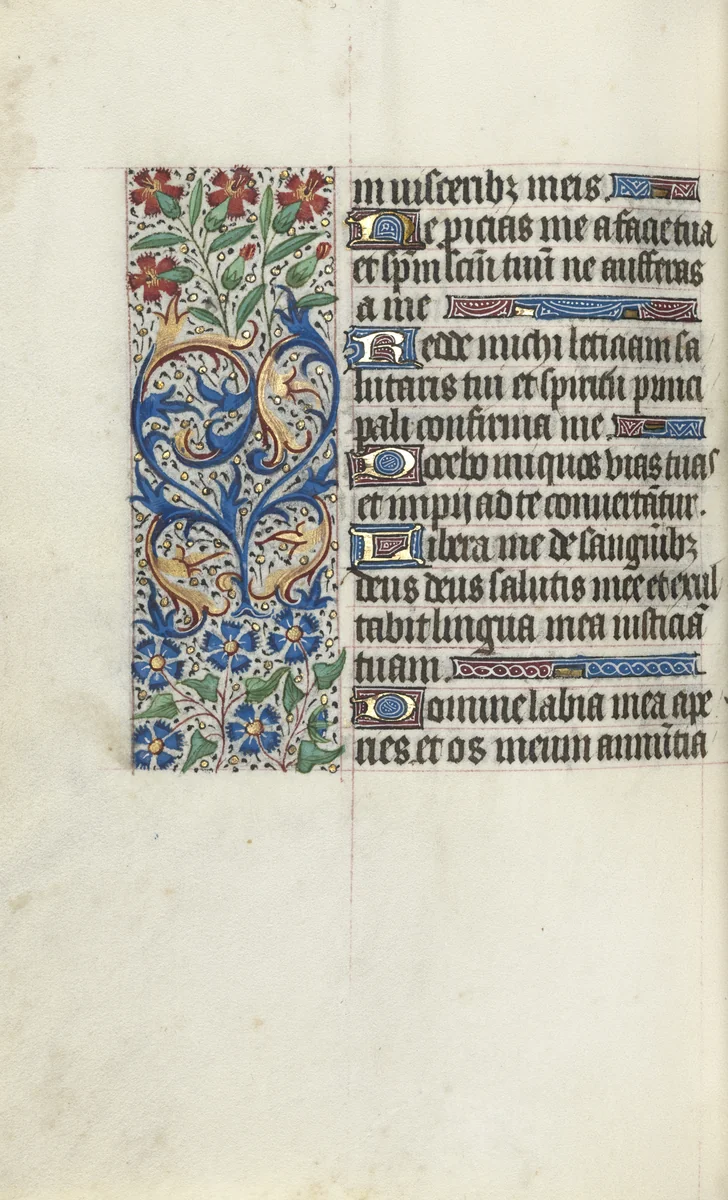 in uisceribꝫ meis.
Ne picias me a facie tua
et sp̄m sc̄m tuū ne aufferas
a me
Redde michi leticiam sa
lutaris tui et spiritū princi
pali confirma me.
Docebo iniquos vias tuas
et impij ad te conuertātur.
Libera me de sanguībꝫ
deus deus salutis mee et exul
tabit lingua mea iusticiā
tuam.
Domine labia mea ape
ries et os meum annūtia